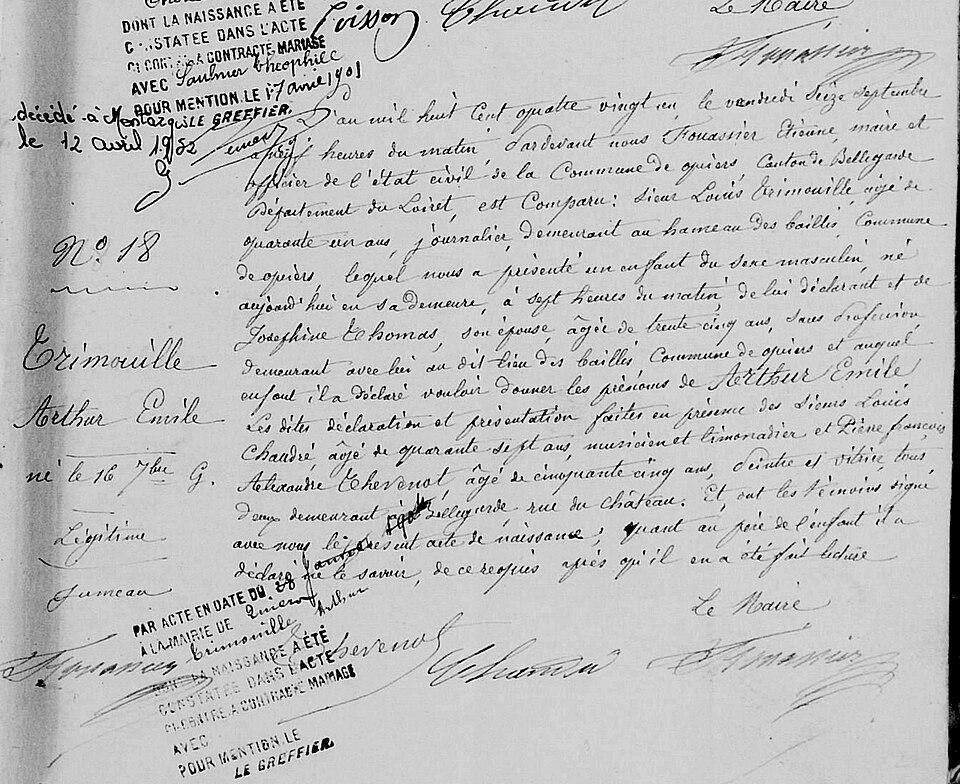 DONT LA NAISSANCE A ÉTÉ
CONSTATEE DANS L'ACTE
CI CONTRE A CONTRACTÉ MARIAGE
AVEC Saulnier Théophile
POUR MENTION. LE 17 avril 1901
LE GREFFIER.
décédé à Montargis
le 12 avril 1932
Poisson
Chaudré
Le Maire
Fouassier
L'an mil huit Cent quatre vingt un, le vendredi Seize Septembre
à neuf heures du matin, Pardevant nous Fouassier Etienne, maire et
officier de l'état civil de la Commune de quiers, Canton de Bellegarde
Département du Loiret, est Comparu : Sieur Louis Trimouille, âgé de
quarante un ans, journalier, demeurant au hameau des baillis, Commune
de quiers, lequel nous a présenté un enfant du sexe masculin, né
aujourd'hui en sa demeure, à sept heures du matin, de lui déclarant et de
Joséphine Thomas, son épouse, âgée de trente cinq ans, sans profession
demeurant avec lui au dit lieu des baillis, Commune de quiers et auquel
enfant il a déclaré vouloir donner les prénoms de Arthur Emile
Les dites déclaration et présentation faites en présence des Sieurs Louis
Chaudré, âgé de quarante sept ans, musicien et limonadier et Pierre françois
Alexandre Thevenot, âgé de cinquante cinq ans, Peintre et vitrier, tous
deux demeurant à Bellegarde, rue du Château. Et ont les témoins signé
avec nous le présent acte de naissance ; quant au père de l'enfant il a
déclaré ne le savoir, de ce requis après qu'il en a été fait lecture
Le Maire
N° 18
Trimouille
Arthur Emile
né le 16 7bre G.
Légitime
Jumeau
PAR ACTE EN DATE DU 28 janvier
À LA MAIRIE DE
Trimouille Arthur
DONT LA NAISSANCE A ÉTÉ
CONSTATÉE DANS L'ACTE
CI-CONTRE A CONTRACTÉ MARIAGE
AVEC
POUR MENTION LE
LE GREFFIER.
Fouassier
Thevenot
Chaudré
Fouassier